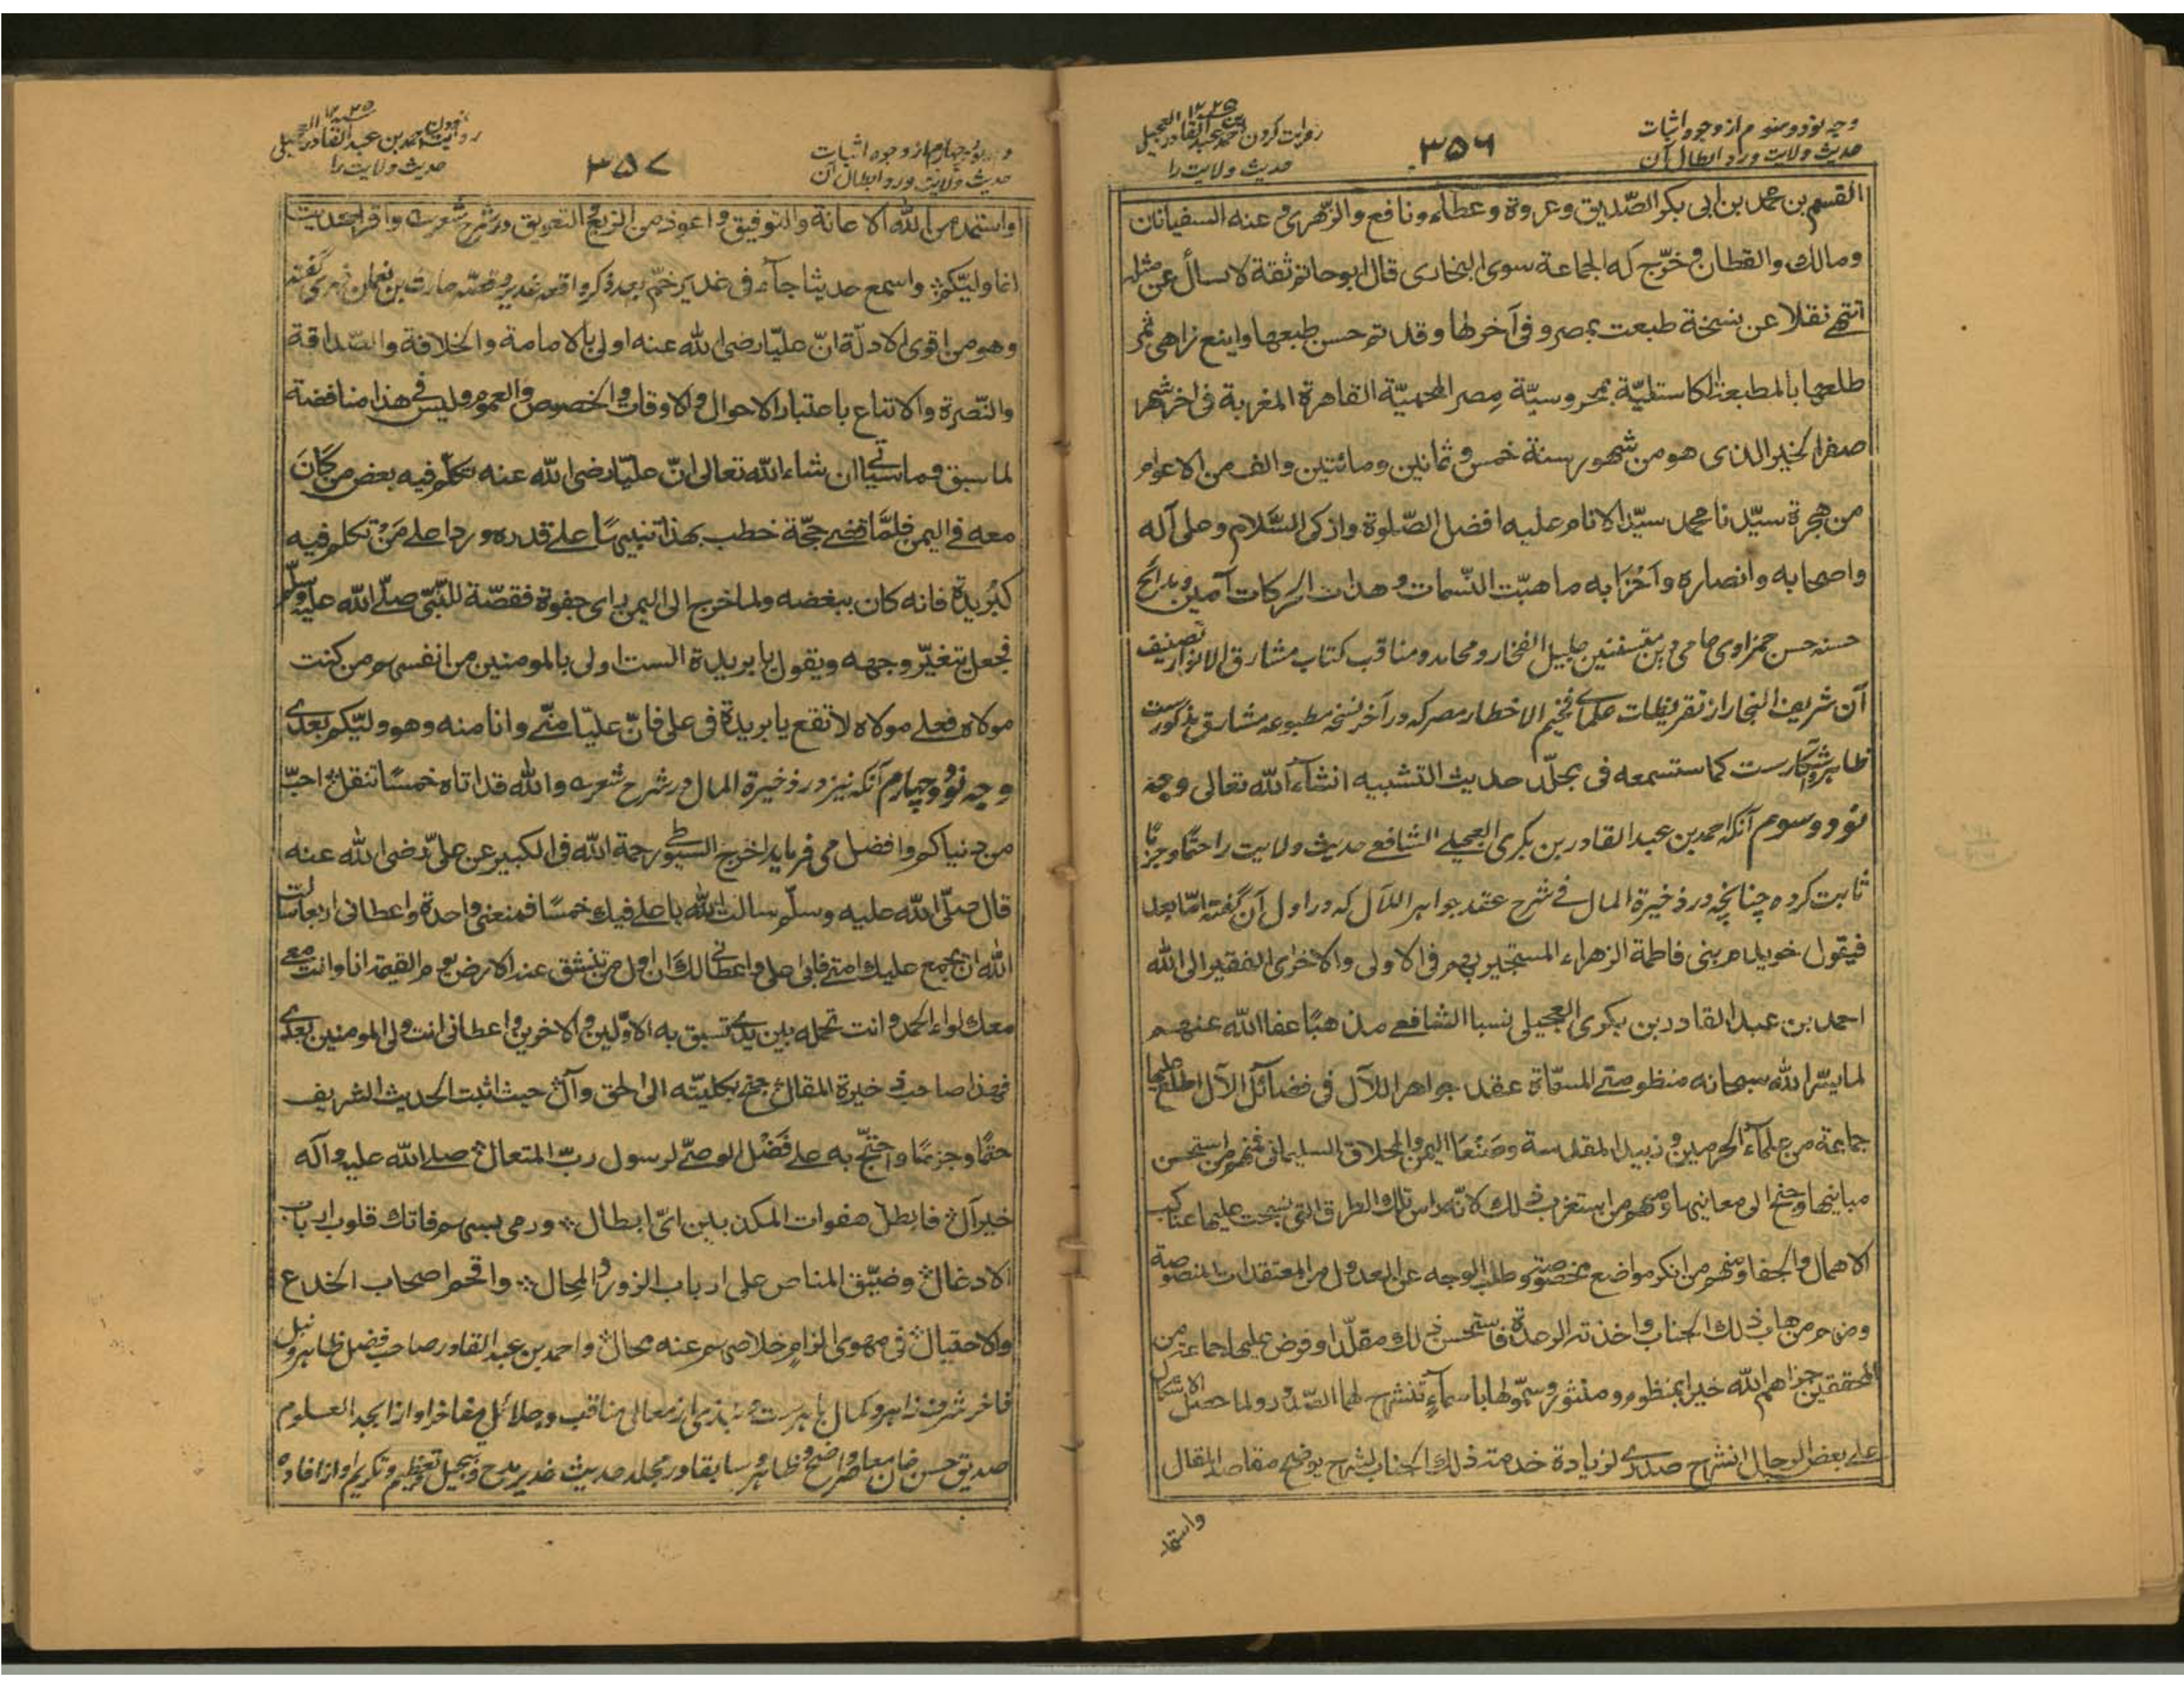 وجه نود و سوم از وجوه اثبات
حدیث ولایت و رد ابطال آن
۳۵۶
روایت کردن احمد بن عبد القادر العجیلی
حدیث ولایت را
القسم بن محمد بن ابی بکر الصّدیق وعروة وعطاء ونافع والزّهری و عنه السفیانان
ومالك والقطان وخرّج له الجماعة سوی البخاری قال ابو حاتم ثقة لا یسأل عن مثله
انتهی نقلا عن نسخة طبعت بمصر و فی آخرها وقد تم حسن طبعها واینع زاهی ثمر
طلعها بالمطبعة الکاستلیّة بمحروسیّة مصر المحمیّة القاهرة المغربة فی اخر شهر
صفر الخیر الذی هو من شهور سنة خمس و ثمانین ومائتین والف من الاعوام
من هجرة سیّدنا محمد سیّد الانام علیه افضل الصّلوة وازکی السّلام وعلی آله
واصحابه وانصاره واحزابه ما هبّت النّسمات و هدأت الحرکات آمین و مدائح
حسنه حسن حمزاوی حامی دین جلیل الفخار ومحامد ومناقب کتاب مشارق الانوار تصنیف
آن شریف النجار از تقریظات علمای فخیم الاخطار مصر که در آخر نسخه مطبوعه مشارق مذکورست
ظاهر و آشکارست کما ستسمعه فی مجلّد حدیث التشبیه انشاء الله تعالی وجه
نود و سوم آنکه احمد بن عبد القادر بن بکری العجیلے الشافعے حدیث ولایت را حتمًا وجزمًا
ثابت کرده چنانچه در ذخیرة المال فے شرح عقد جواهر اللآل که در اول آن گفته امّا بعد
فیقول خویدم بنی فاطمة الزهراء المستجیر بهم فی الاولی والاخری الفقیر الی الله
احمد بن عبد القادر بن بکری العجیلی نسبا الشافعے مذهبًا عفا الله عنهم
لما یسّر الله سبحانه منظومتے المسمّاة عقد جواهر اللآل فی فضائل الآل اطلع علیها
جماعة من علماء الحرمین و زبید المقدسة وصنعا الیمن والمخلاف السلیمانی فمنهم من استحسن
مبانیها وجنح الی معانیها ومنهم من استغرب ذلك لانّه راس تلك الطرق التی نسجت علیها عناکب
الاهمال والجفا ومنهم من انکر مواضع مخصوصة وطلب الوجه عن العدول من المعتقدات المنصوصة
ومنهم من هاب ذلك الجناب واخذته الرعدة فاستحسن ذلك مقلّدا وقرض علیها جماعة من
المحققین جزاهم الله خیرا بمنظوم ومنثور وسمّوها باسماءٍ تنشرح لها الصّدور ولما حصل الاشکال
علے بعض الرجال انشرح صدری لزیادة خدمة ذلك الجناب بشرح یوضح مقاصد المقال
واستمد
وجه نود و چهارم از وجوه اثبات
حدیث ولایت و رد ابطال آن
۳۵۷
روایت نمودن احمد بن عبد القادر العجیلی
حدیث ولایت را
واستمد من الله الاعانة والتوفیق واعوذ من الزیغ والتعویق در شرح شعر واقر احدیث
انما ولیّکم واسمع حدیثا جآء فی غدیر خمّ بعد ذکر واقعه غدیر و قصّه حارث بن نعمان فهری گفته
وهو من اقوی الادلّة انّ علیّا رضی الله عنه اولی بالامامة والخلافة والصّداقة
والنّصرة والاتباع باعتبار الاحوال والاوقات والخصوص والعموم ولیس فے هذا مناقضة
لما سبق وما سیأتی ان شاء الله تعالی انّ علیّا رضی الله عنه تکلّم فیه بعض من کان
معه فے الیمن فلمّا قضے حجّة خطب بهذا تنبیهًا علے قدره ورد علے من تکلم فیه
کبُریدة فانه کان یبغضه ولما خرج الی الیمن رای جفوة فقصّة للنّبیّ صلّے الله علیه وسلّم
فجعل یتغیّر وجهه ویقول یا بریدة الست اولی بالمومنین من انفسهم من کنت
مولاه فعلے مولاه لا تقع یا بریدة فی علی فانّ علیّا منّے وانا منه وهو ولیّکم بعدے
وجه نود و چهارم آنکه نیز در ذخیرة المال در شرح شعر والله قد اتاه خمسًا تنقل احبّ
من دنیاکم وافضل می فرماید اخرج السّیوطی رحمة الله فی الکبیر عن علیّ رضی الله عنه
قال صلّی الله علیه وسلّم سالت الله یا علے فیك خمسًا فمنعنی واحدة واعطانی اربعا سالت
الله ان یجمع علیك امتے فابی علی واعطانی لك ان اول من تنشق عنه الارض یوم القیمة انا وانت معے
معك لواء الحمد وانت تحمله بین یدی تسبق به الاوّلین والاخرین واعطانی انت ولی المومنین بعدے
فهذا صاحب ذخیرة المقال جنح بکلیّته الی الحق وآل حیث اثبت الحدیث الشریف
حتمًا وجزمًا واحتجّ به علے فَضْل الوصیّ لرسول ربّ المتعال صلے الله علیه وآله
خیر آل فابطل هفوات المکذبین ایّ ابطال ورمی بسهم فاتك قلوب ارباب
الادغال وضیّق المناص علی ارباب الزور والمحال واقحم اصحاب الخدع
والاحتیال فی مهوی الزام خلاصهم عنه محال واحمد بن عبد القادر صاحب فضل ظاهر و نبل
فاخر شرف زاهر و کمال باهرست و نبذی از معالی مناقب و جلائل مفاخر او از ابجد العلوم
صدیق حسن خان معاصر واضح و ظاهر و سابقا در مجلد حدیث غدیر مدح و تبجیل و تعظیم و تکریم او از افاده